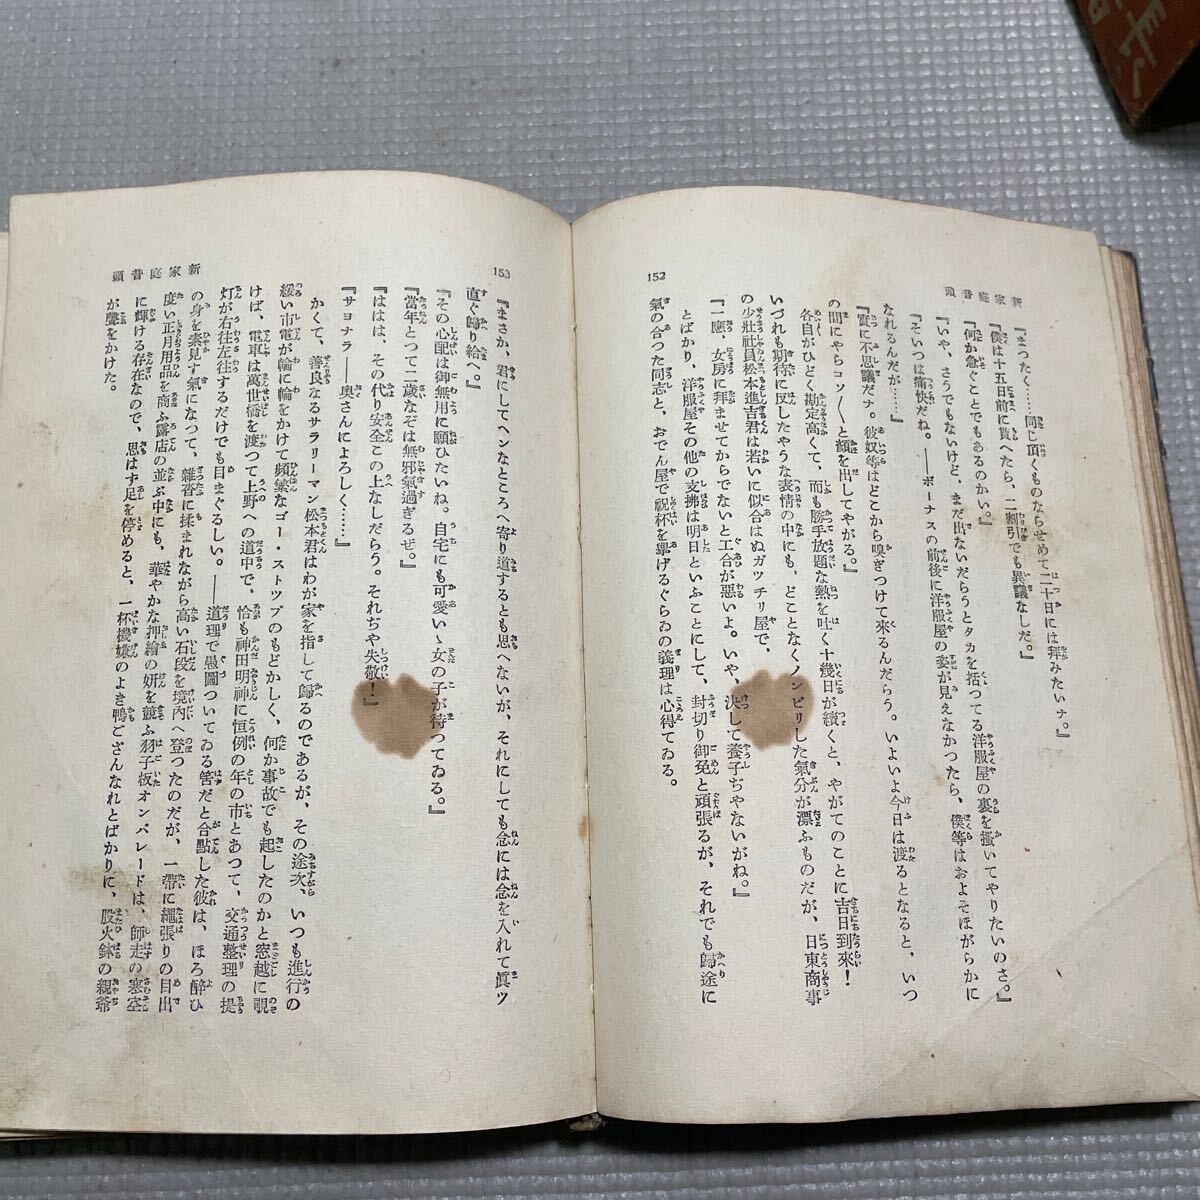 新家庭音頭
『まつたく……同じ頂くものならせめて二十日には拜みたいナ。』
『僕は十五日前に貰へたら、二割引でも異議なしだ。』
『何か急ぐことでもあるのかい。』
『いや、さうでもないけど、まだ出ないだらうとタカを括つてる洋服屋の裏を搔いてやりたいのさ。』
『そいつは痛快だね。――ボーナスの前後に洋服屋の姿が見えなかつたら、僕等はおよそほがらかに
なれるんだが……』
『實に不思議だナ。彼奴等はどこから嗅ぎつけて來るんだらう。いよいよ今日は渡るとなると、いつ
の間にやらコソ〳〵と顏を出してやがる。』
各自がひどく勘定高くて、而も勝手放題な熱を吐く十幾日が續くと、やがてのことに吉日到來！
いづれも期待に反したやうな表情の中にも、どことなくノンビリした氣分が漂ふものだが、日東商事
の少壯社員松本進吉君は若いに似合はぬガツチリ屋で、
『一應、女房に拜ませてからでないと工合が惡いよ。いや、決して養子ぢやないがね。』
とばかり、洋服屋その他の支拂は明日といふことにして、封切り御免と頑張るが、それでも歸途に
氣の合つた同志と、おでん屋で祝杯を擧げるぐらゐの義理は心得てゐる。
152
153
『まさか、君にしてヘンなところへ寄り道するとも思へないが、それにしても念には念を入れて眞ツ
直ぐ歸り給へ。』
『その心配は御無用に願ひたいね。自宅にも可愛いゝ女の子が待つてゐる。』
『當年とつて二歳なぞは無邪氣過ぎるぜ。』
『ははは、その代り安全この上なしだらう。それぢや失敬！』
『サヨナラ――奥さんによろしく……』
かくて、善良なるサラリーマン松本君はわが家を指して歸るのであるが、その途次、いつも進行の
緩い市電が輪に輪をかけて頻繁なゴー・ストツプのもどかしく、何か事故でも起したのかと窓越に覗
けば、電車は萬世橋を渡つて上野への道中で、恰も神田明神に恒例の年の市とあつて、交通整理の提
灯が右往左往するだけでも目まぐるしい。――道理で愚圖ついてゐる筈だと合點した彼は、ほろ醉ひ
の身を素見す氣になつて、雜沓に揉まれながら高い石段を境內へ登つたのだが、一帶に繩張りの目出
度い正月用品を商ふ露店の並ぶ中にも、華やかな押繪の妍を競ふ羽子板オンパレードは、師走の寒空
に輝ける存在なので、思はず足を停めると、一杯機嫌のよき鴨ござんなれとばかりに、股火鉢の親爺
が聲をかけた。
新家庭音頭